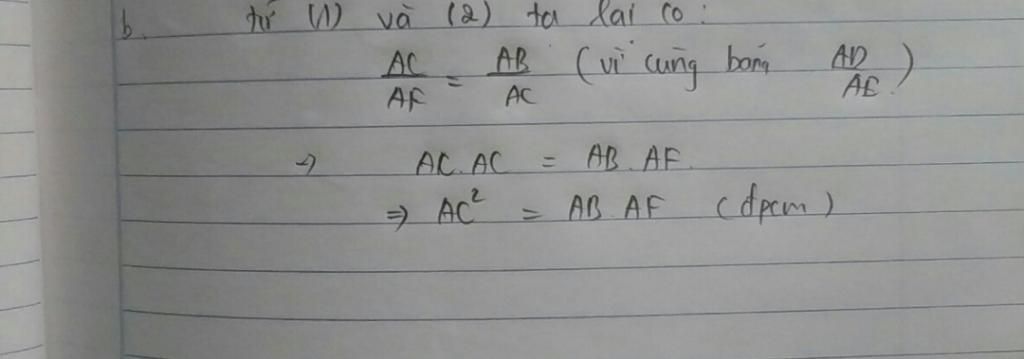 b. từ (1) và (2) ta lại có:
AC/AF = AB/AC (vì cùng bằng AD/AE)
→ AC.AC = AB.AF.
⇒ AC² = AB.AF (đpcm)